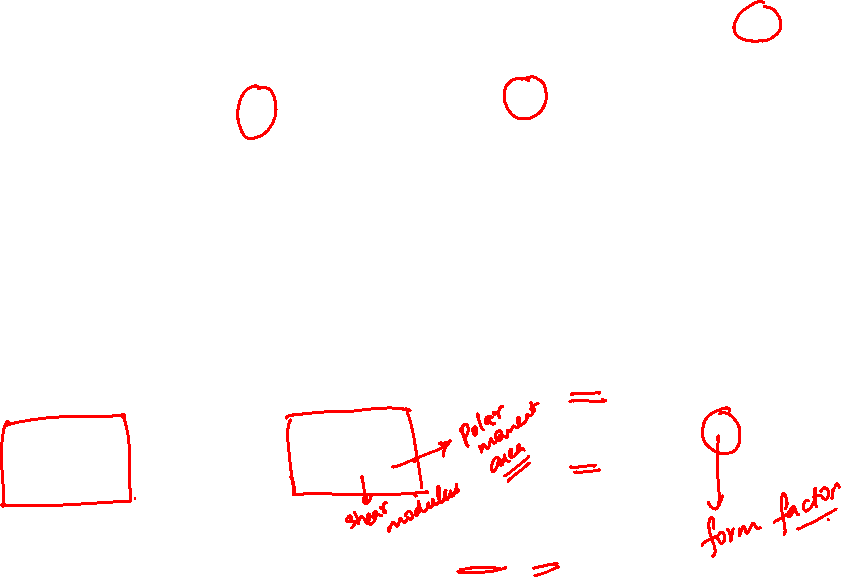 Polar
moment
area
shear
modulus
form factor